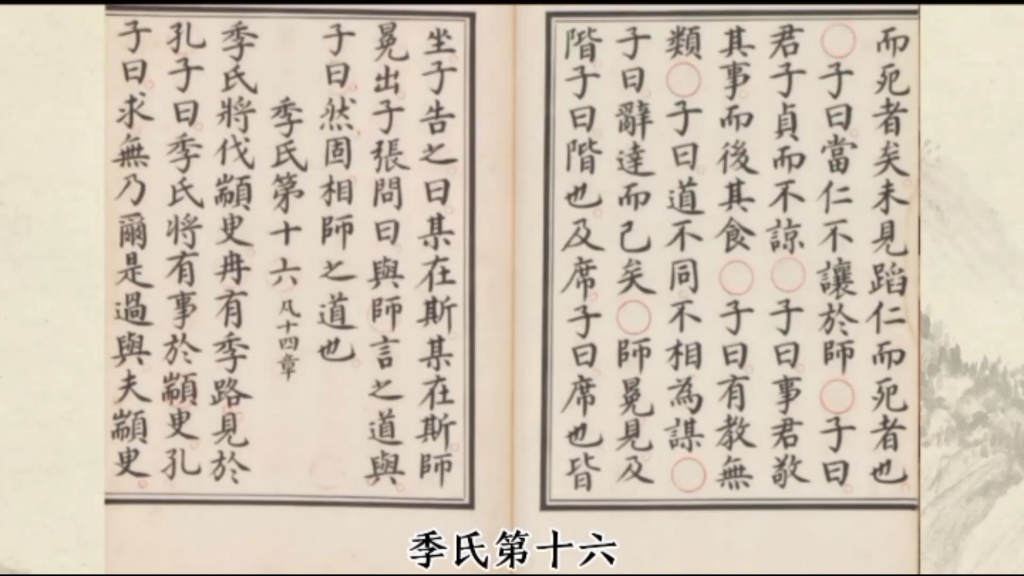 而死者矣未見蹈仁而死者也
〇子曰當仁不讓於師〇子曰
君子貞而不諒〇子曰事君敬
其事而後其食〇子曰有教無
類〇子曰道不同不相為謀〇
子曰辭達而已矣〇師冕見及
階子曰階也及席子曰席也皆
坐子告之曰某在斯某在斯師
冕出子張問曰與師言之道與
子曰然固相師之道也
季氏第十六 凡十四章
季氏將伐顓臾冉有季路見於
孔子曰季氏將有事於顓臾孔
子曰求無乃爾是過與夫顓臾
季氏第十六